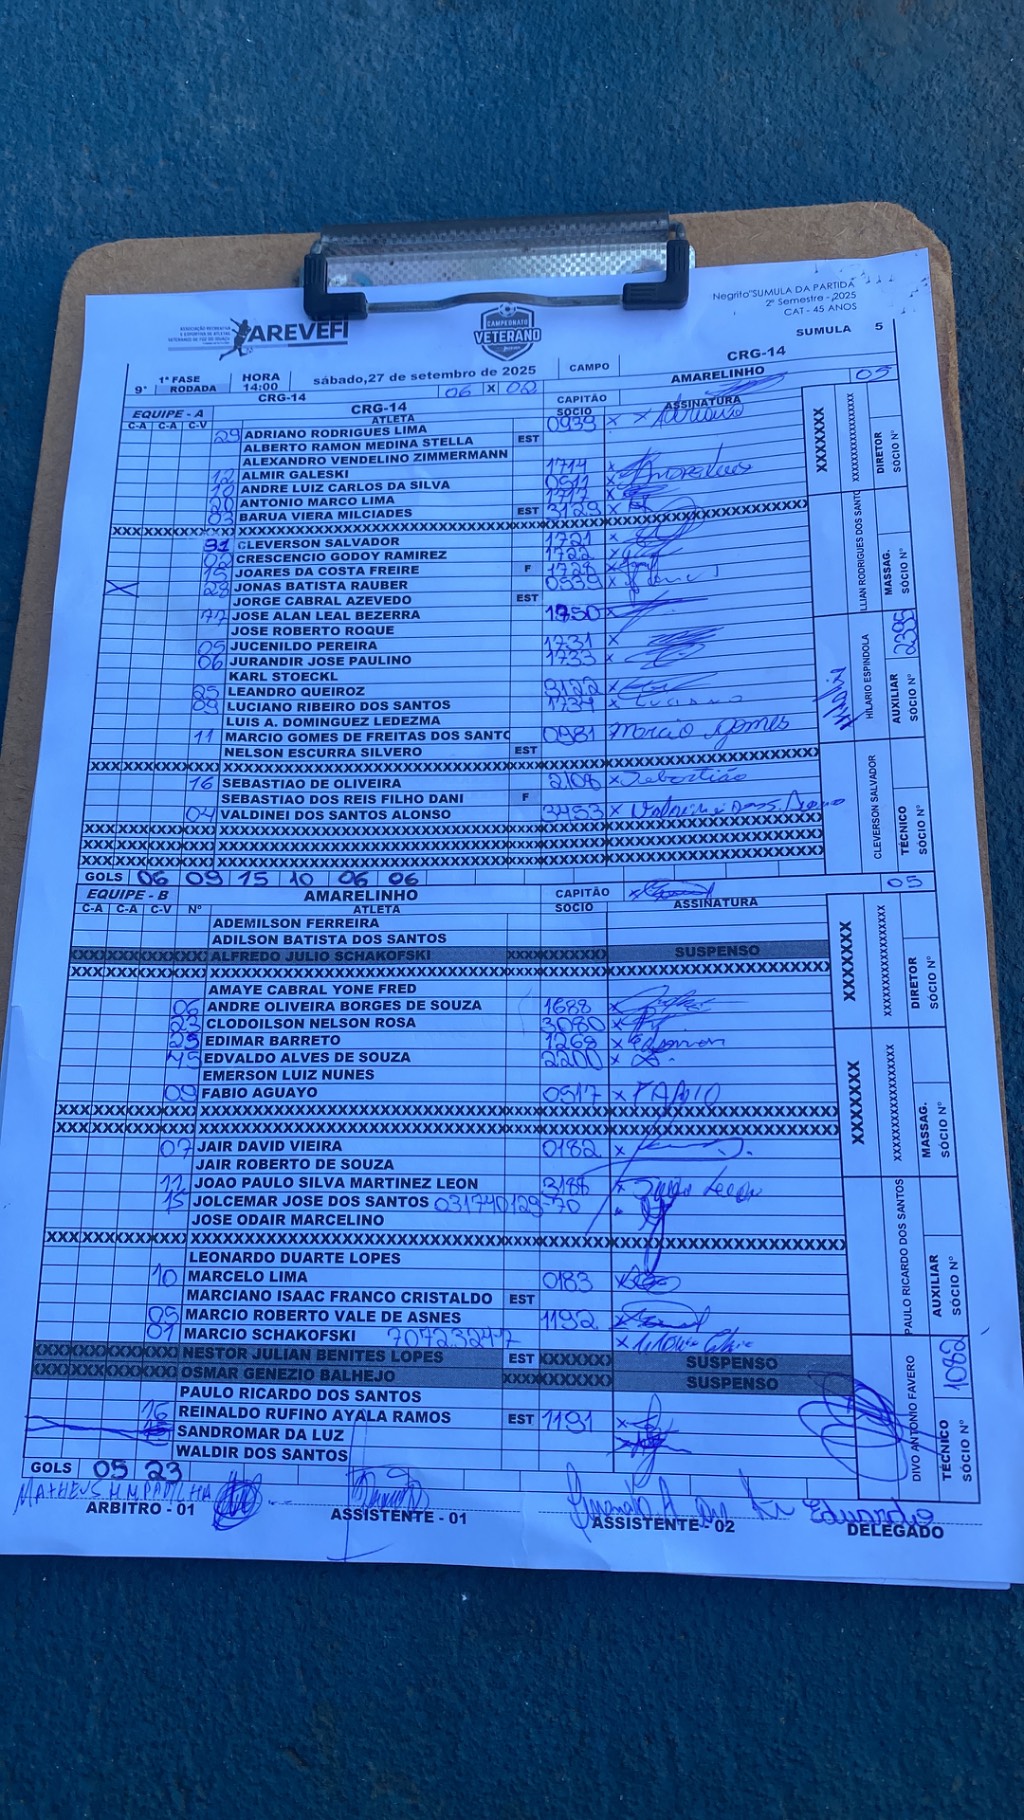 Negrito"SUMULA DA PARTIDA
2º Semestre - 2025
CAT - 45 ANOS
AREVEFI
CAMPEONATO
VETERANO
SUMULA 5
9ª 1ª FASE RODADA HORA 14:00 sábado,27 de setembro de 2025 CAMPO CRG-14
CRG-14 06 X 02 AMARELINHO
EQUIPE - A CRG-14 CAPITÃO 05
C-A C-A C-V ATLETA SOCIO ASSINATURA
29 ADRIANO RODRIGUES LIMA 0939 x
ALBERTO RAMON MEDINA STELLA EST
ALEXANDRO VENDELINO ZIMMERMANN
12 ALMIR GALESKI 1714 x
10 ANDRE LUIZ CARLOS DA SILVA 0511 x
20 ANTONIO MARCO LIMA 1717 x
03 BARUA VIERA MILCIADES EST 3129 x
91 CLEVERSON SALVADOR 1721 x
02 CRESCENCIO GODOY RAMIREZ 1722 x
15 JOARES DA COSTA FREIRE F 1728 x
X 28 JONAS BATISTA RAUBER 0539 x
JORGE CABRAL AZEVEDO EST
177 JOSE ALAN LEAL BEZERRA 1750 x
JOSE ROBERTO ROQUE
05 JUCENILDO PEREIRA 1731 x
06 JURANDIR JOSE PAULINO 1733 x
KARL STOECKL
25 LEANDRO QUEIROZ 3122 x
09 LUCIANO RIBEIRO DOS SANTOS 1734 x LUCIANO
LUIS A. DOMINGUEZ LEDEZMA
11 MARCIO GOMES DE FREITAS DOS SANTO 0981 Marcio gomes
NELSON ESCURRA SILVERO EST
16 SEBASTIAO DE OLIVEIRA 2108 x Sebastião
SEBASTIAO DOS REIS FILHO DANI F
04 VALDINEI DOS SANTOS ALONSO 3453 x
GOLS 06 09 15 10 06 06
XXXXXXX
DIRETOR SÓCIO Nº
LLIAN RODRIGUES DOS SANTO MASSAG. SÓCIO Nº
HILARIO ESPINDOLA AUXILIAR SÓCIO Nº 2395
CLEVERSON SALVADOR TÉCNICO SÓCIO Nº
EQUIPE - B AMARELINHO CAPITÃO 05
C-A C-A C-V Nº ATLETA SOCIO ASSINATURA
ADEMILSON FERREIRA
ADILSON BATISTA DOS SANTOS
ALFREDO JULIO SCHAKOFSKI SUSPENSO
AMAYE CABRAL YONE FRED
06 ANDRE OLIVEIRA BORGES DE SOUZA 1688 x
23 CLODOILSON NELSON ROSA 3080 x
25 EDIMAR BARRETO 1268 x
45 EDVALDO ALVES DE SOUZA 2200 x
EMERSON LUIZ NUNES
09 FABIO AGUAYO 0517 x FABIO
07 JAIR DAVID VIEIRA 0182 x
JAIR ROBERTO DE SOUZA
11 JOAO PAULO SILVA MARTINEZ LEON 3188 x
15 JOLCEMAR JOSE DOS SANTOS 031740129-70
JOSE ODAIR MARCELINO
LEONARDO DUARTE LOPES
10 MARCELO LIMA 0183 x
MARCIANO ISAAC FRANCO CRISTALDO EST
05 MARCIO ROBERTO VALE DE ASNES 1192 x
01 MARCIO SCHAKOFSKI x
NESTOR JULIAN BENITES LOPES EST SUSPENSO
OSMAR GENEZIO BALHEJO SUSPENSO
PAULO RICARDO DOS SANTOS
16 REINALDO RUFINO AYALA RAMOS EST 1191 x
SANDROMAR DA LUZ
WALDIR DOS SANTOS
GOLS 05 23
XXXXXXX
DIRETOR SÓCIO Nº
XXXXXXX
MASSAG. SÓCIO Nº
PAULO RICARDO DOS SANTOS AUXILIAR SÓCIO Nº
DIVO ANTONIO FAVERO TÉCNICO SÓCIO Nº 1082
MATHEUS Eduardo
ARBITRO - 01 ASSISTENTE - 01 ASSISTENTE - 02 DELEGADO